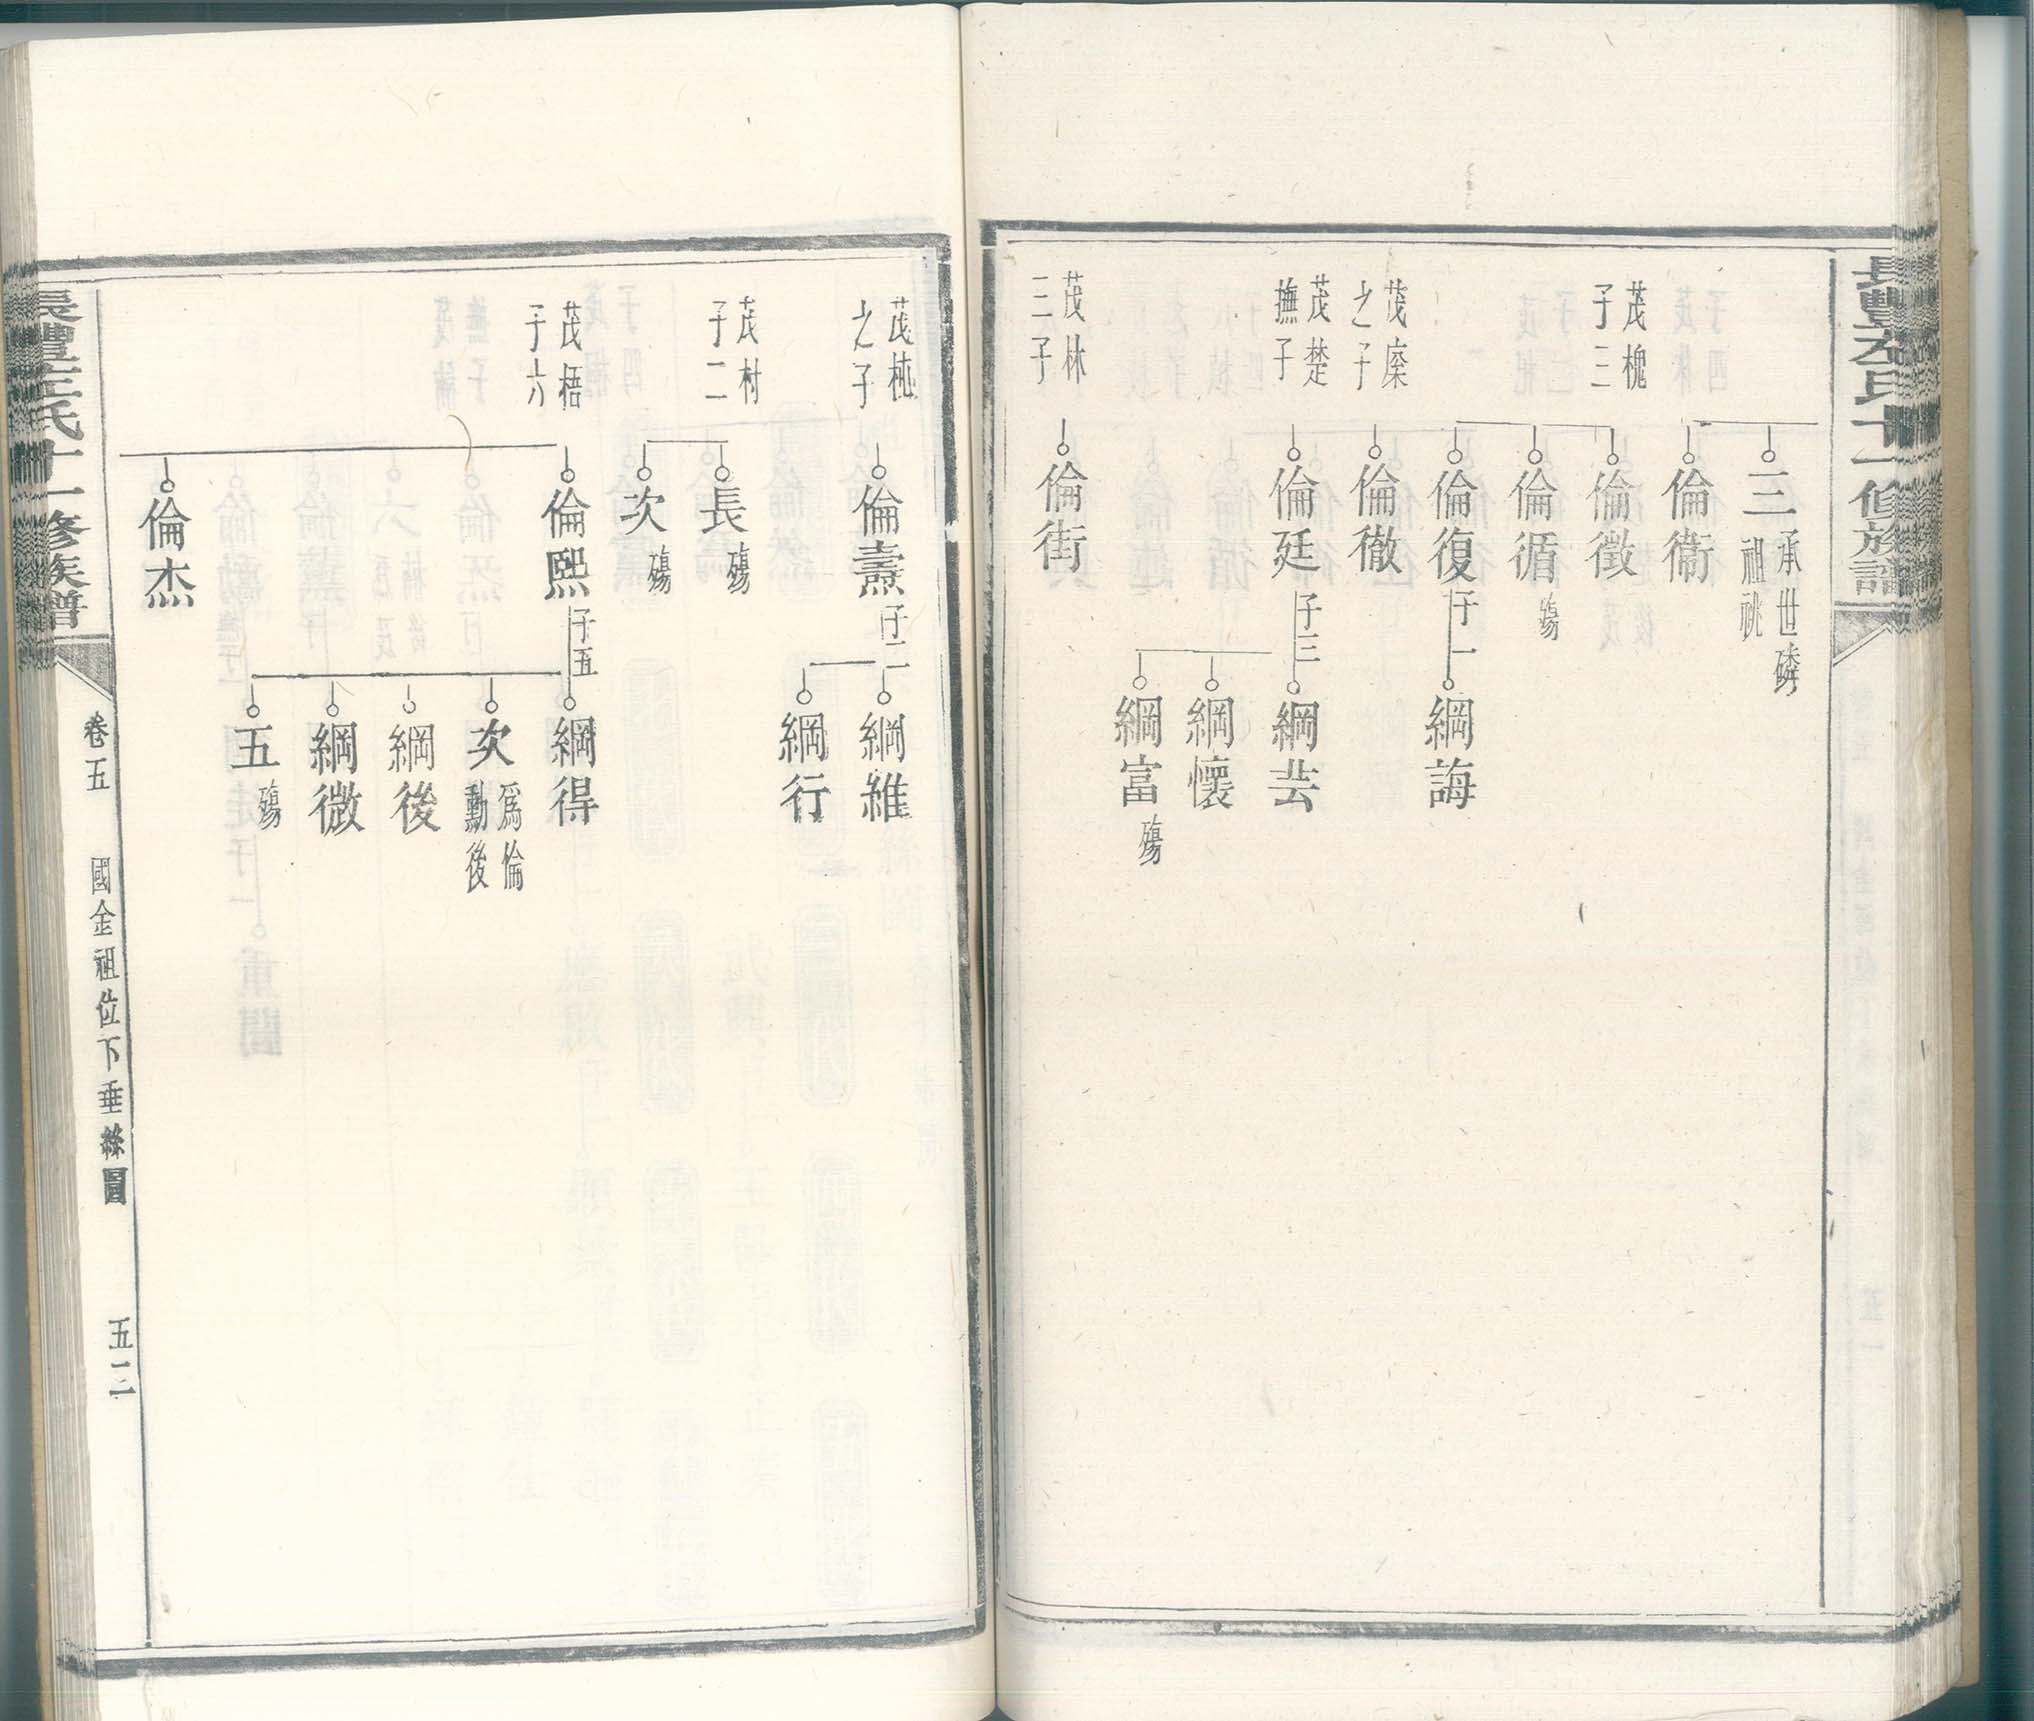 長豐左氏十一修族譜
三 承世璘祖祧
倫衞
茂槐子三
倫徵
倫循 殤
倫復 子一
綱誨
茂棨之子
倫徹
茂楚撫子
倫廷 子三
綱芸
綱懷
綱富 殤
茂林三子
倫街
茂桃之子
倫燾 子二
綱維
綱行
茂村子二
長 殤
次 殤
茂梧子六
倫熙 子五
綱得
次 爲倫勳後
綱後
綱微
五 殤
倫杰
長豐左氏十一修族譜
卷五
國金祖位下垂絲圖
五二